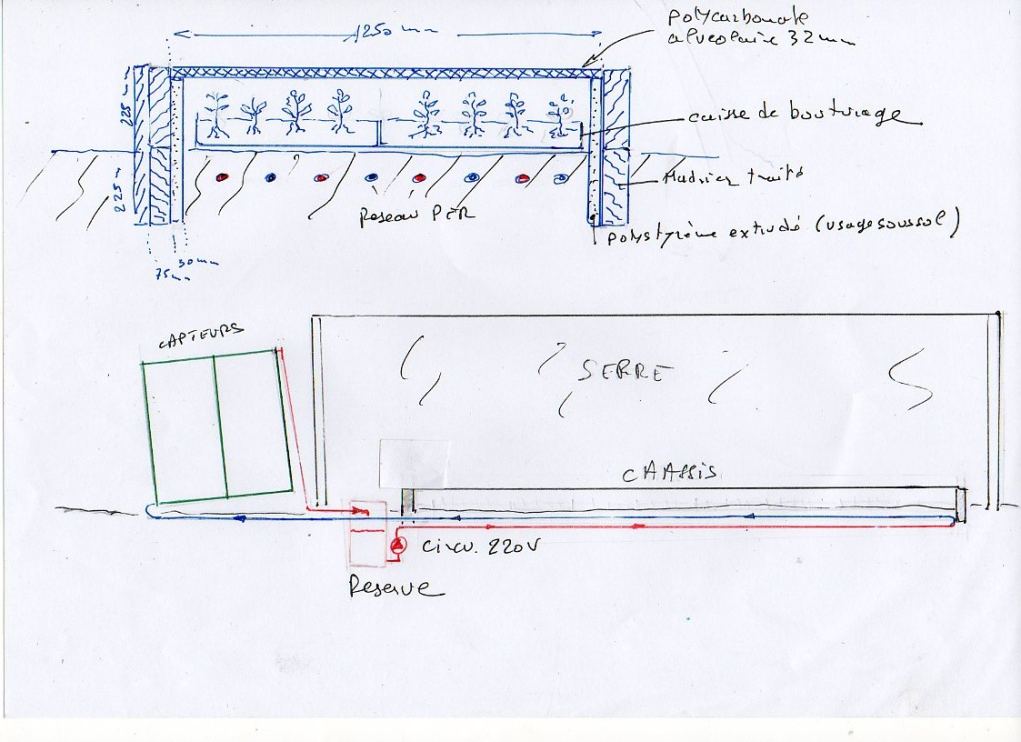 1250 mm
polycarbonate
alveolaire 32mm
225
225
caisse de bouturage
Madrier traité
Reseau PER
polystyrène extrudé (usage sous sol)
30mm
75mm
CAPTEURS
SERRE
CHASSIS
Circu. 220V
Reserve